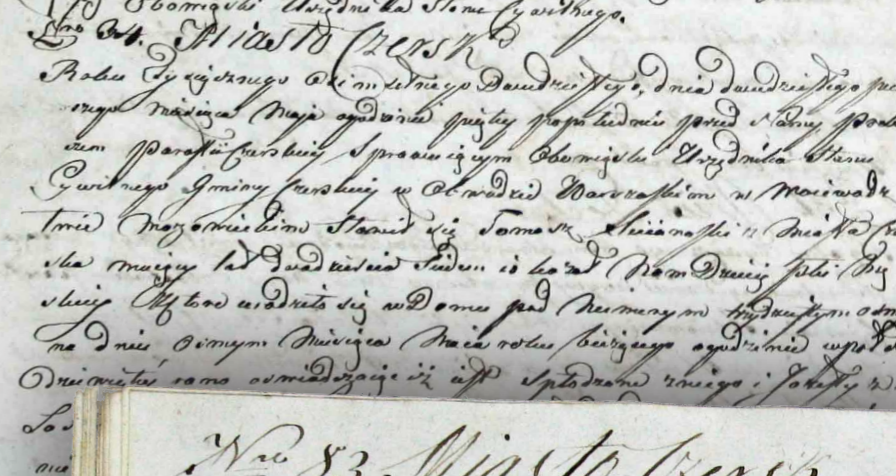 Obowiązki Urzędnika Stanu Cywilnego.
Nro 34. Miasto Czersk
Roku Tysiącznego Ośmsetnego Dwudziestego, dnia dwudziestego
miesiąca Maja o godzinie piątey popołudniu przed Nami
Parafii Czerskiey Sprawuiącym Obowiązki Urzędnika Stanu
Cywilnego Gminy Czerskiey w Obwodzie Warszawskim w Woiewodz
twie Mazowieckim Stawił się Tomasz z Miasta
ska maiący lat dwadzieścia Siedm i okazał Nam Dziecię płci
skiey Które urodziło się w Domu pod Numerem trzydziestym
na dniu Osmym Miesiąca Maia roku bieżącego o godzinie
Dziewiątey rano oswiadczaiąc iż iest spłodzone z niego i Jozefy z
Nro 83 Miasto Czersk